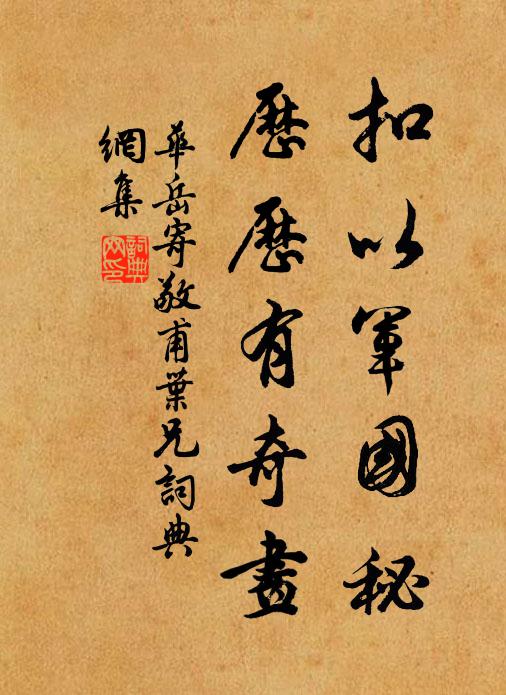 扣以軍國秘
歷歷有奇畫
華岳寄敬甫葉兄詞典
網集
詞典
網印